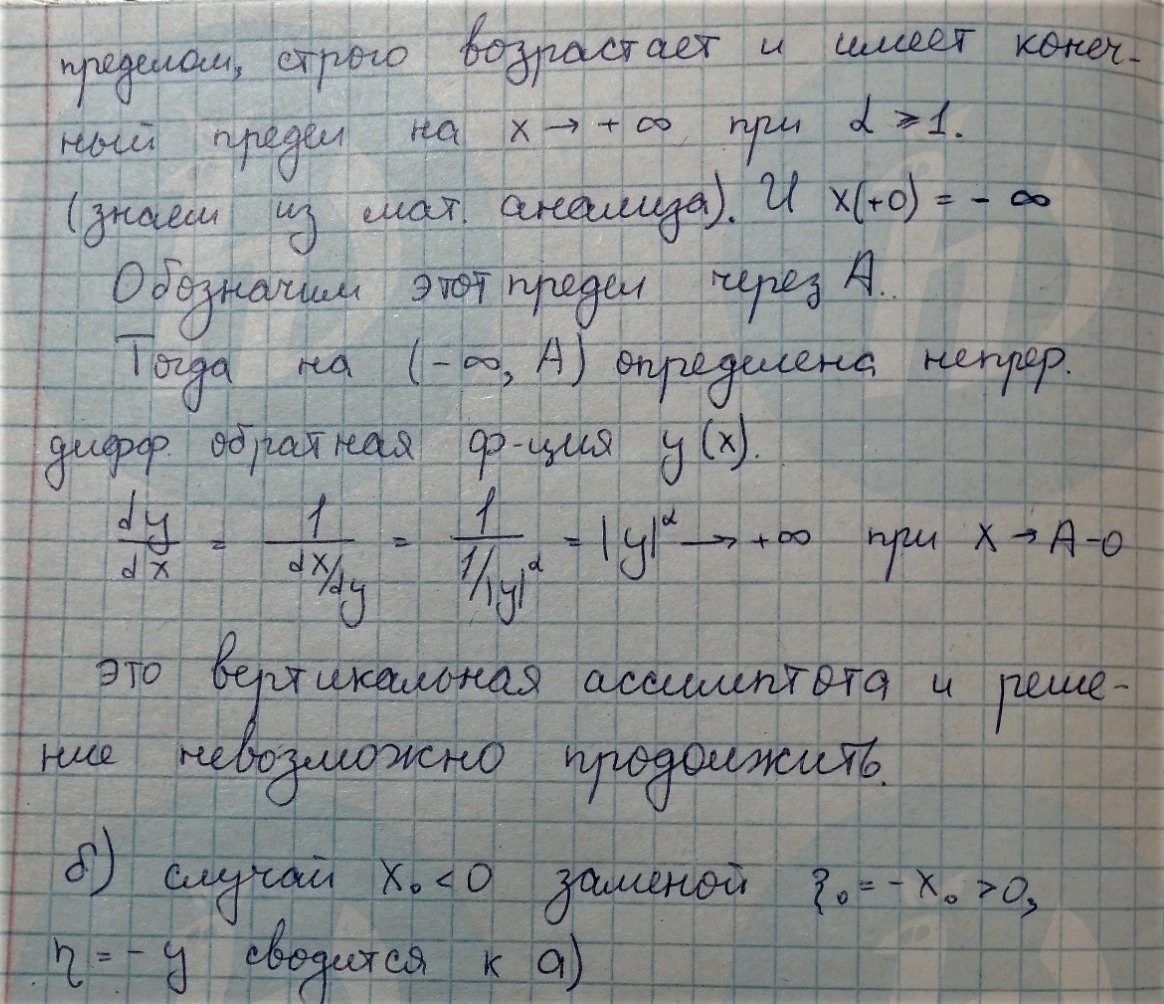 пределом, строго возрастает и имеет конеч-
ный предел на x → + ∞ при α ⩾ 1.
(знаем из мат. анализа). И x(+0) = - ∞
Обозначим этот предел через A.
Тогда на (-∞, A) определена непрер.
дифф. обратная ф-ция y(x).
dy/dx = 1/(dx/dy) = 1/(1/|y|^α) = |y|^α → +∞ при x → A-0
это вертикальная ассимптота и реше-
ние невозможно продолжить.
б) случай x₀ < 0 заменой ξ₀ = -x₀ > 0,
η = -y сводится к а)